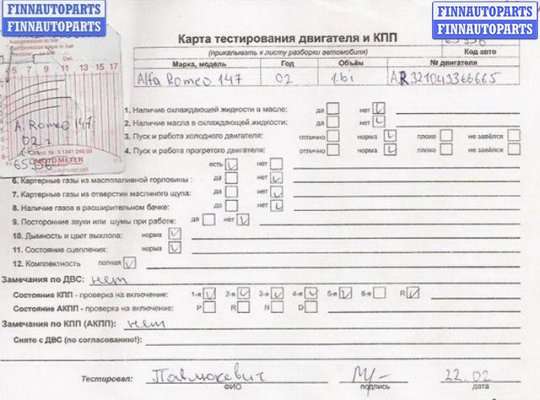 FINNAUTOPARTS
FINNAUTOPARTS
FINNAUTOPARTS
FINNAUTOPARTS
Карта тестирования двигателя и КПП
(прикалывать к листу разборки автомобиля)
Код авто
Марка, модель Год Объём № двигателя
Alfa Romeo 147 02 1.6i AR321043366665
5 7 9 11 13 15 17
A. Romeo 147
02 г
65936
MOTOMETER
1. Наличие охлаждающей жидкости в масле: да нет
2. Наличие масла в охлаждающей жидкости: да нет
3. Пуск и работа холодного двигателя: отлично норма плохо не завёлся
4. Пуск и работа прогретого двигателя: отлично норма плохо не завёлся
есть нет
6. Картерные газы из маслозаливной горловины: да нет
7. Картерные газы из отверстия масляного щупа: да нет
8. Наличие газов в расширительном бачке: да нет
9. Посторонние звуки или шумы при работе: да нет
10. Дымность и цвет выхлопа: норма
11. Состояние сцепления: норма
12. Комплектность полная
Замечания по ДВС: нет
Состояние КПП - проверка на включение: 1-я 2-я 3-я 4-я 5-я 6-я R
Состояние АКПП - проверка на включение: P R N D
Замечания по КПП (АКПП): нет
Снято с ДВС (по согласованию!):
Тестировал: Павлюкевич 22.02
ФИО подпись дата